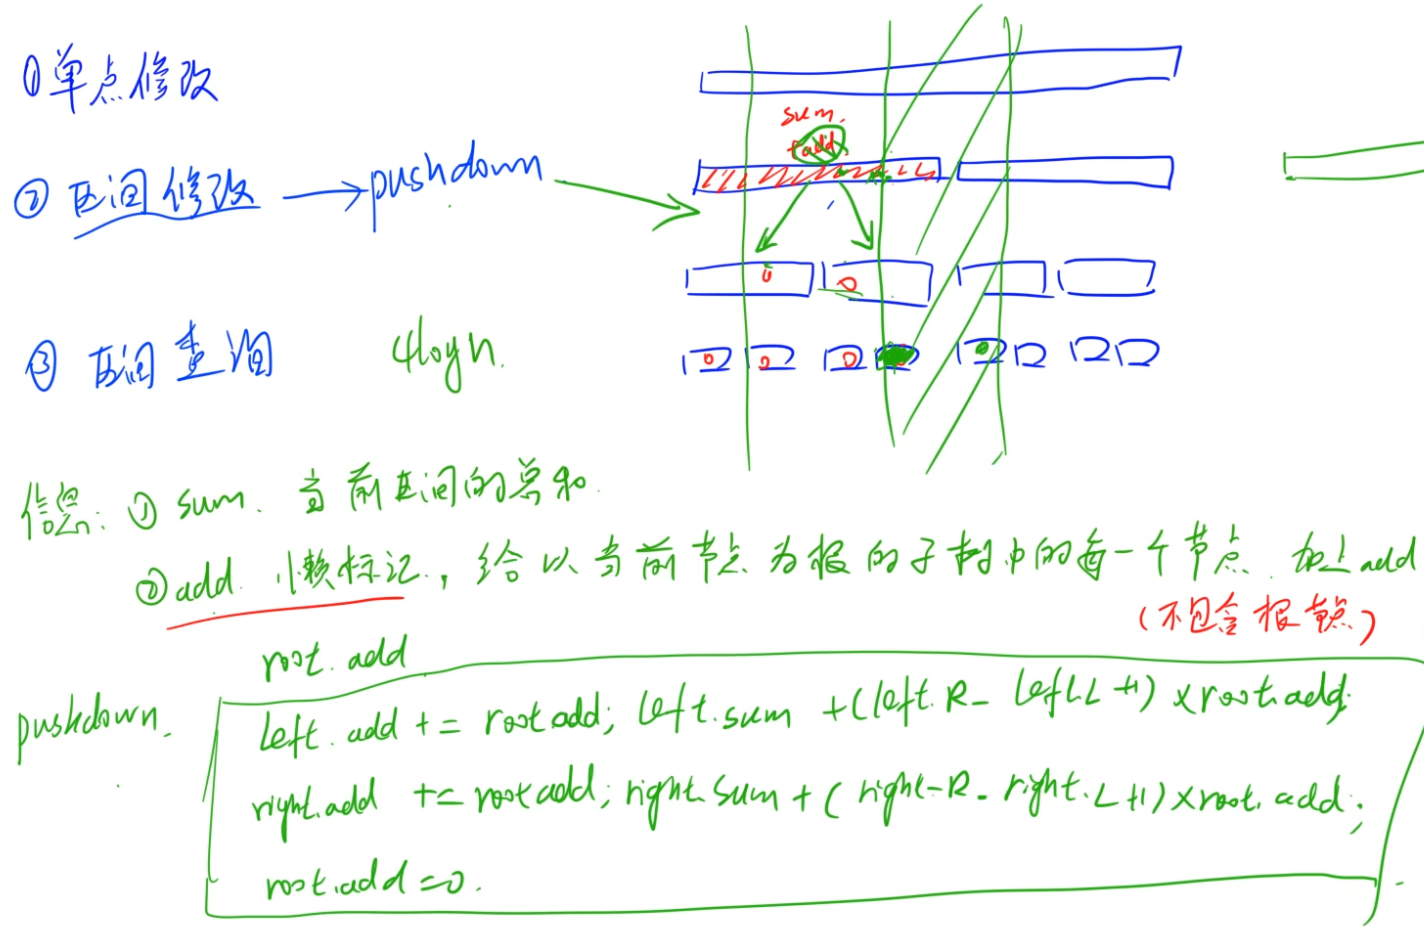 ①单点修改
②区间修改 → pushdown
③区间查询 4logn.
sum.
add
信息: ① sum. 当前区间的总和.
② add. 懒标记, 给以当前节点为根的子树中的每一个节点 加上add
(不包含根节点)
root.add
pushdown.
left.add += root.add; left.sum +(left.R - left.L +1) × root.add;
right.add += root.add; right.sum + (right.R - right.L +1) × root.add;
root.add = 0.